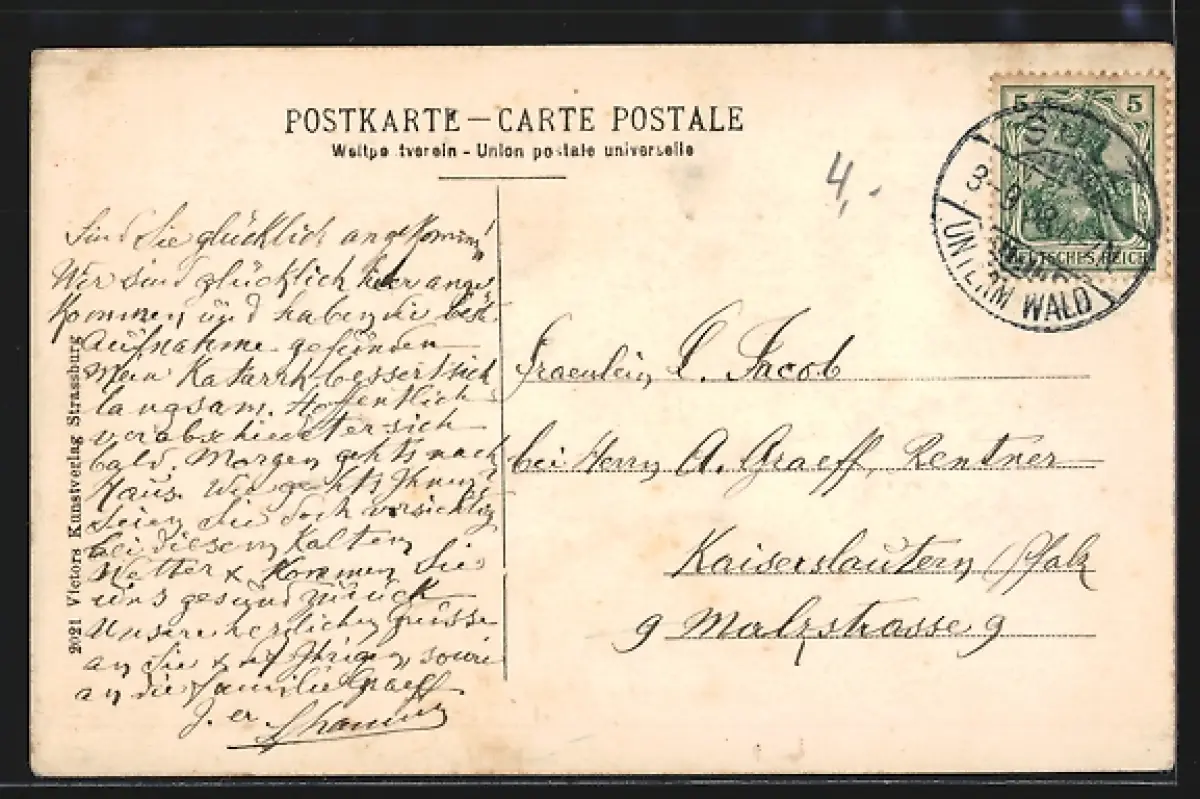 POSTKARTE — CARTE POSTALE
Weltpostverein - Union postale universelle
5 5
DEUTSCHES REICH
SULZ
3-9 08
UNTERM WALD
4,-
Sind Sie glücklich angekommen!
Wir sind glücklich hier ange
kommen und haben die beste
Aufnahme gefunden
Mein Katarrh bessert sich
langsam. Hoffentlich
verabschiedet er sich
bald. Morgen geht's nach
Haus. Wie geht's Ihnen?
Seien Sie doch vorsichtig
bei diesem kalten
Wetter & kommen Sie
uns gesund zurück
Unsere herzlichen Grüsse
an Sie & Ihrigen sowie
an die Familie Graeff
J. er.
Fraeulein L. Jacob
bei Herrn A. Graeff, Rentner
Kaiserslautern, Pfalz
9 Malzstrasse 9
2021 Victors Kunstverlag Strassburg